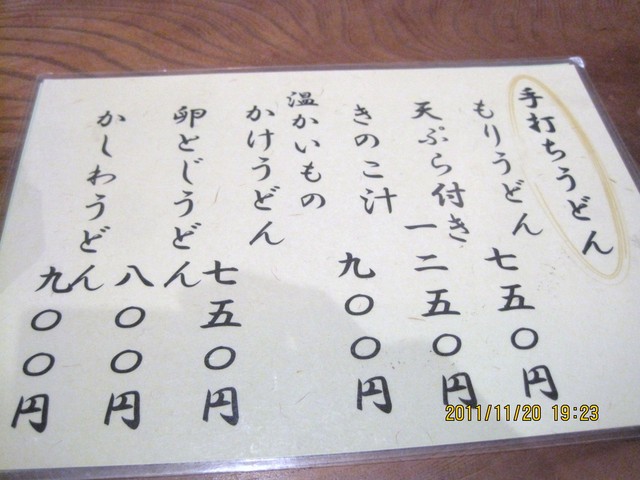 手打ちうどん
もりうどん 七五〇円
天ぷら付き 一二五〇円
きのこ汁 九〇〇円
温かいもの
かけうどん 七五〇円
卵とじうどん 八〇〇円
かしわうどん 九〇〇円
2011/11/20 19:23